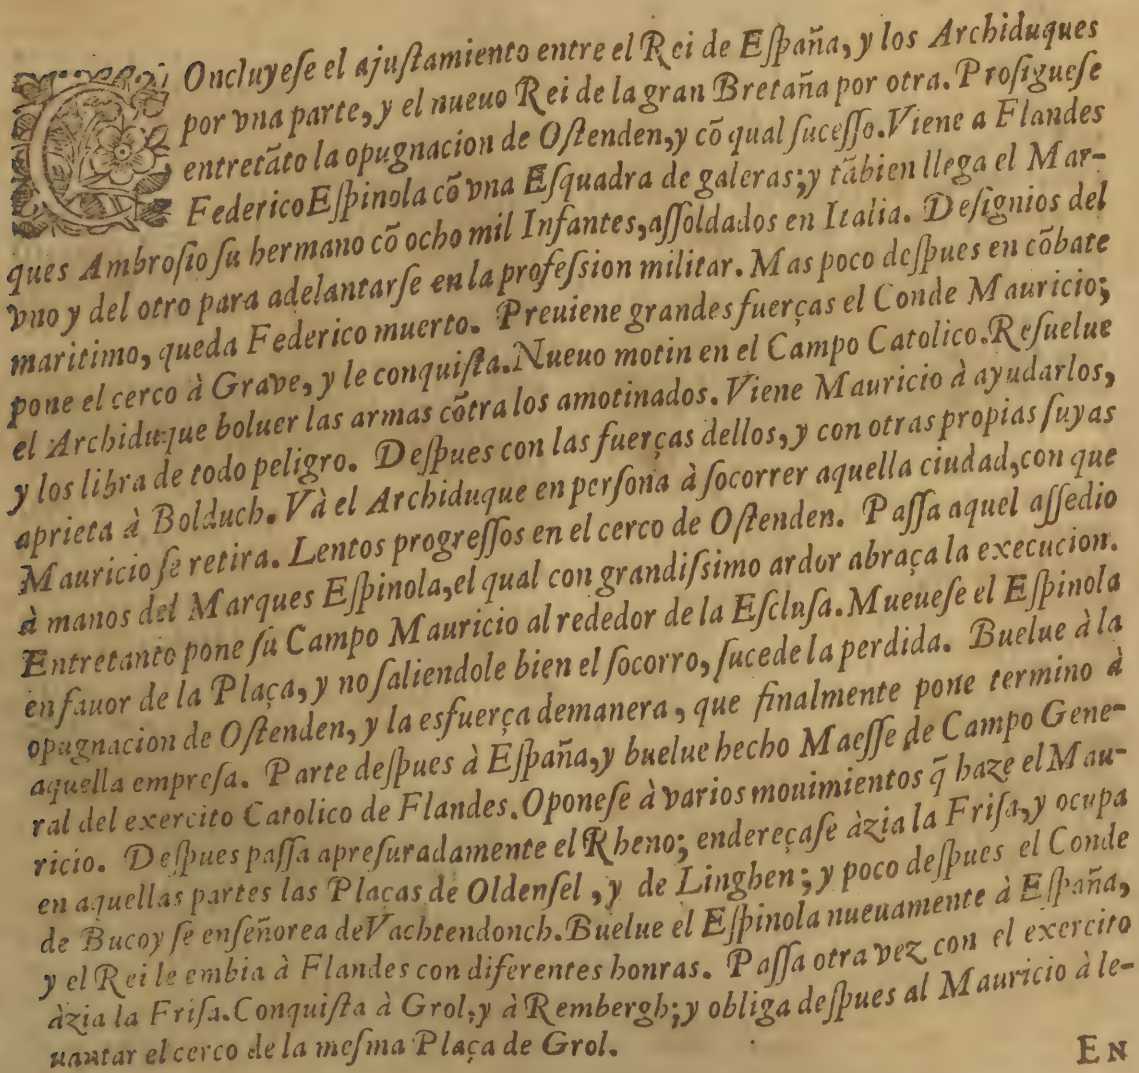 COncluyeſe el ajuſtamiento entre el Rei de Eſpaña, y los Archiduques
por vna parte, y el nueuo Rei de la gran Bretaña por otra. Proſigueſe
entretãto la opugnacion de Oſtenden, y cõ qual ſuceſſo. Viene a Flandes
Federico Eſpinola cõ vna Eſquadra de galeras; y tãbien llega el Mar-
ques Ambroſio ſu hermano cõ ocho mil Infantes, aſſoldados en Italia. Deſignios del
vno y del otro para adelantarſe en la profeſsion militar. Mas poco deſpues en cõbate
maritimo, queda Federico muerto. Preuiene grandes fuerças el Conde Mauricio;
pone el cerco à Grave, y le conquiſta. Nueuo motin en el Campo Catolico. Reſuelue
el Archiduque boluer las armas cõtra los amotinados. Viene Mauricio à ayudarlos,
y los libra de todo peligro. Deſpues con las fuerças dellos, y con otras propias ſuyas
aprieta à Bolduch. Và el Archiduque en perſona à ſocorrer aquella ciudad, con que
Mauricio ſe retira. Lentos progreſſos en el cerco de Oſtenden. Paſſa aquel aſſedio
à manos del Marques Eſpinola, el qual con grandiſsimo ardor abraça la execucion.
Entretanto pone ſu Campo Mauricio al rededor de la Eſcluſa. Mueueſe el Eſpinola
en fauor de la Plaça, y no ſaliendole bien el ſocorro, ſucede la perdida. Buelue à la
opugnacion de Oſtenden, y la esfuerça demanera, que finalmente pone termino à
aquella empreſa. Parte deſpues à Eſpaña, y buelue hecho Maeſſe de Campo Gene-
ral del exercito Catolico de Flandes. Oponeſe à varios mouimientos q̃ haze el Mau-
ricio. Deſpues paſſa apreſuradamente el Rheno; endereçaſe àzia la Friſa, y ocupa
en aquellas partes las Plaças de Oldenſel, y de Linghen; y poco deſpues el Conde
de Bucoy ſe enſeñorea de Vachtendonch. Buelue el Eſpinola nueuamente à Eſpaña,
y el Rei le embia à Flandes con diferentes honras. Paſſa otra vez con el exercito
àzia la Friſa. Conquiſta à Grol, y à Rembergh; y obliga deſpues al Mauricio à le-
uantar el cerco de la meſma Plaça de Grol.
EN